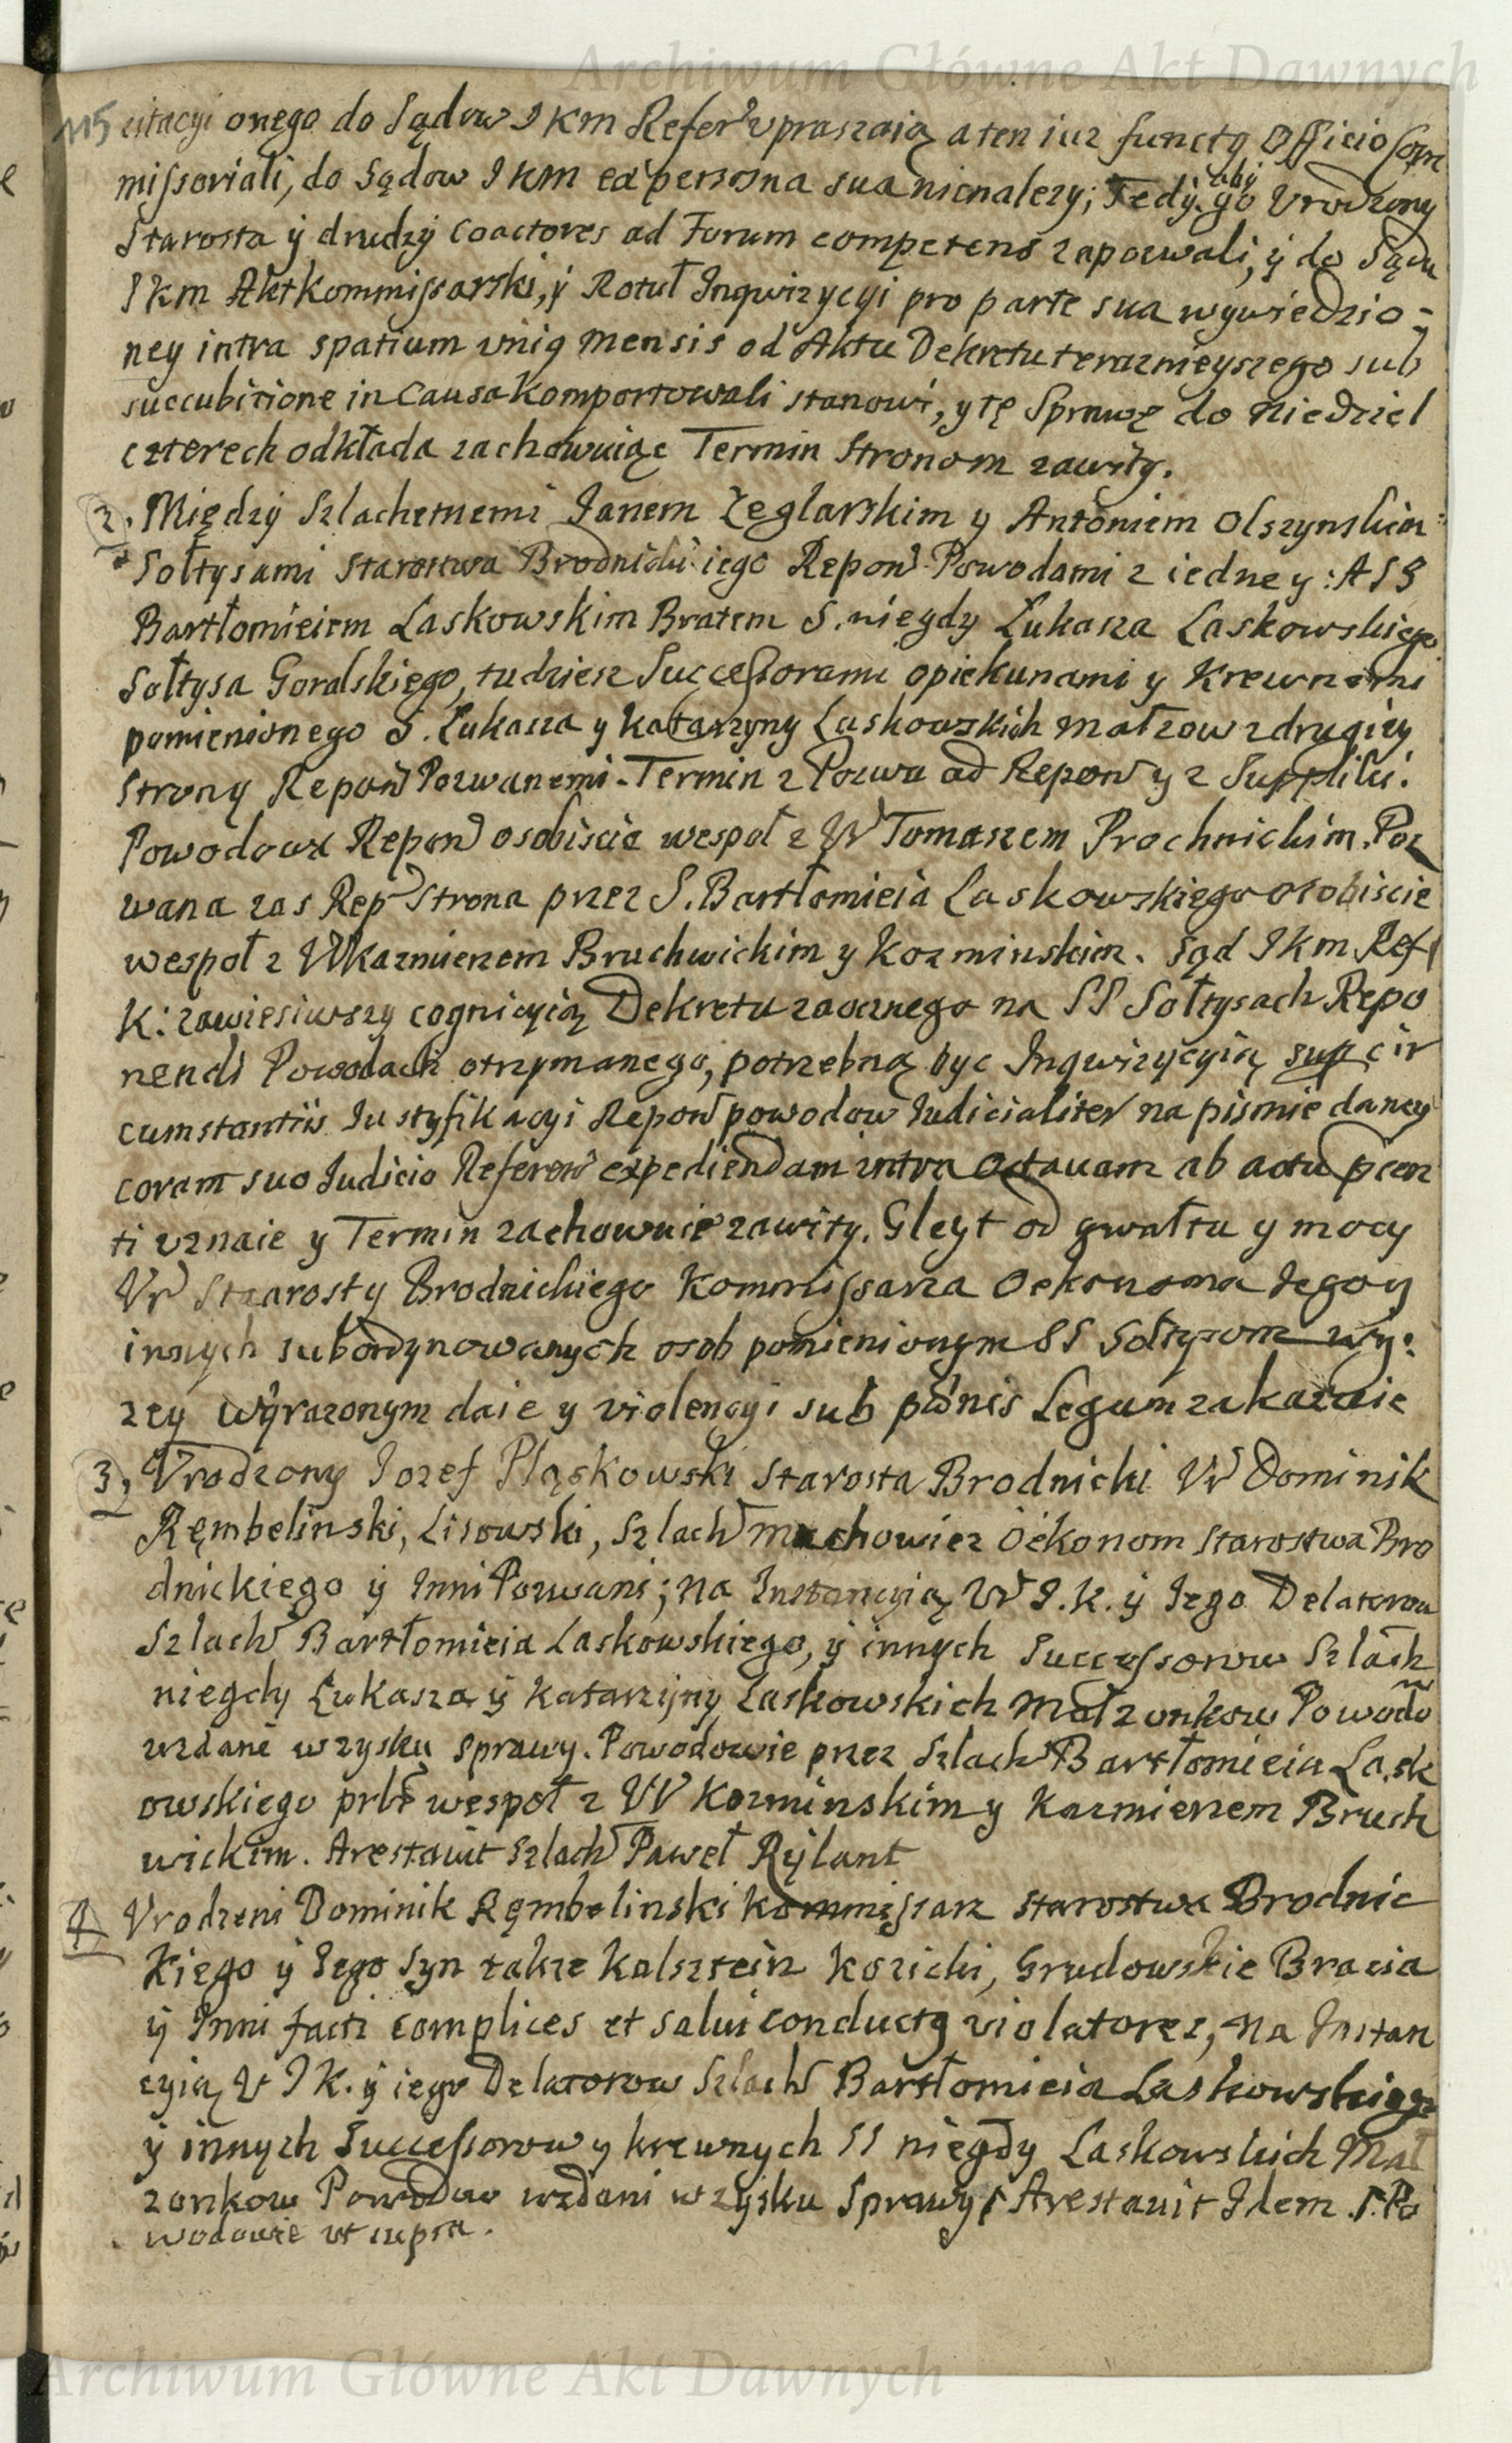 Archiwum Główne Akt Dawnych
115 citacyi onego do Sądow J K m Refer upraszaią a ten iuz functg Officio Com
missoriali, do Sądow J K m ea persona sua nienalezy; Tedy aby go Urodzony
Starosta ÿ drudzÿ coactores ad Forum competens zapozwali, ÿ do Sądu
J K m Akt kommissarski, ÿ Rotuł Inqwizycyi pro parte sua wywiedzio-
ney intra spatium unig mensis od Aktu Dekretu teraznieyszego sub
succubitione in Causa komportowali stanowi, y tę Sprawę do Niedziel
czterech odkłada zachowuiąc Termin Stronom zawity.
2. Międzÿ Szlachetnemi Janem Zeglarskim y Antoniem Olszynskim
Sołtysami Starostwa Brodnickiego Repon Powodami z iedney: A SS
Bartłomieiem Laskowskim Bratem S. niegdy Łukasza Laskowskiego
Sołtysa Goralskiego, tudziesz Successorami opiekunami y Krewnemi
pomienionego S. Łukasza y Katarzyny Laskowskich małzow z drugiey
strony Repon Pozwanemi. Termin z Pozwu ad Repon y z Suppliki.
Powodowie Repon osobiscie wespoł z W Tomaszem Prochnickim. Poz
wana zas Rep Strona przez S. Bartłomieia Laskowskiego osobiscie
wespoł z W Kazmierzem Bruchwickim y Kozminskim. Sąd J K m Ref
K: zawiesiwszy cognicyią Dekretu zaocznego na SS Sołtysach Repo
nendi Powodach otrzymanego, potrzebną byc Inqwizycyią sup cir
cumstantiis Justyfikacyi Repon powodow Judicialiter na pismie daney
coram suo Judicio Referen expediendam intra octauam ab actu pcen
ti uznaie y Termin zachowuie zawity. Gleyt od gwałtu y mocy
Ur Starosty Brodnickiego Kommissarza Oekonoma Jego y
innych subordynowanych osob pomienionym SS Sołtysom wy:
zey wyrazonym daie y violencyi sub pœnis Legum zakazuie
3, Urodzony Jozef Pląskowski Starosta Brodnicki Ur Dominik
Ręmbelinski, Lisowski, Szlach Machowicz Oekonom Starostwa Bro
dnickiego ÿ Inni Pozwani; na Instancyią W J. K. ÿ Jego Delatorow
Szlach Bartłomieia Laskowskiego, ÿ innych Successorow Szlach
niegdy Łukasza ÿ Katarzÿny Laskowskich Małzonkow Powodo
wzdani w zysku sprawy. Powodowie przez Szlach Bartłomieia Lask
owskiego prltr wespoł z W Kozminskim y Kazmierzem Bruch
wickim. Arestauit Szlach Paweł Rÿlant
4 Urodzeni Dominik Rębmbelinski Kommissarz Starostwa Brodnic
kiego ÿ Jego Syn takze Kalsztein Kozicki, Grudowskie Bracia
ÿ Inni facti complices et salui conductg violatores, na Instan
cyią U J K. ÿ iego Delatorow Szlach Bartłomieia Laskowskiego
ÿ innych Successorow y krewnych SS niegdy Laskowskich Mał
zonkow Powodow wzdani w zysku Sprawy Arestauit Idem S. Po
wodowie ut supra.
Archiwum Główne Akt Dawnych